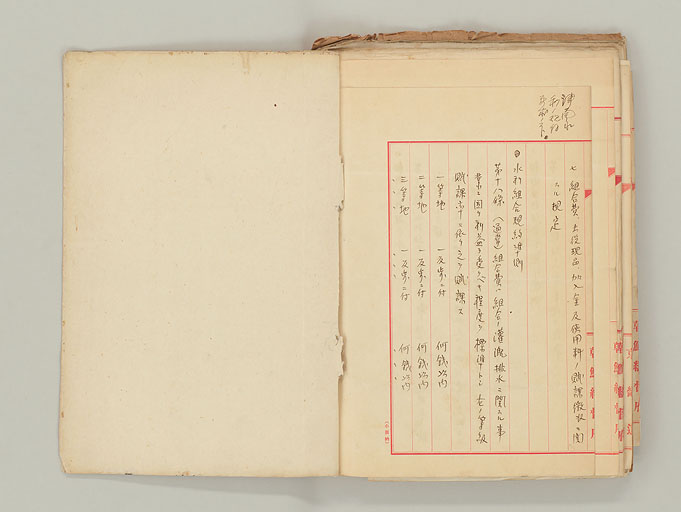 七 組合費、夫役現品、加入金及使用料ノ賦課徴収ニ関
スル規定
水利組合規約準則
第十八條 (通達) 組合費ハ組合ノ灌漑排水ニ関スル事
業ニ因リ利益ヲ受クヘキ程度ヲ標準トシ左ノ等級
賦課率ニ依リ之ヲ賦課ス
一等地 一反歩ニ付 何銭以内
二等地 一反歩ニ付 何銭以内
三等地 一反歩ニ付 何銭以内
朝鮮總督府